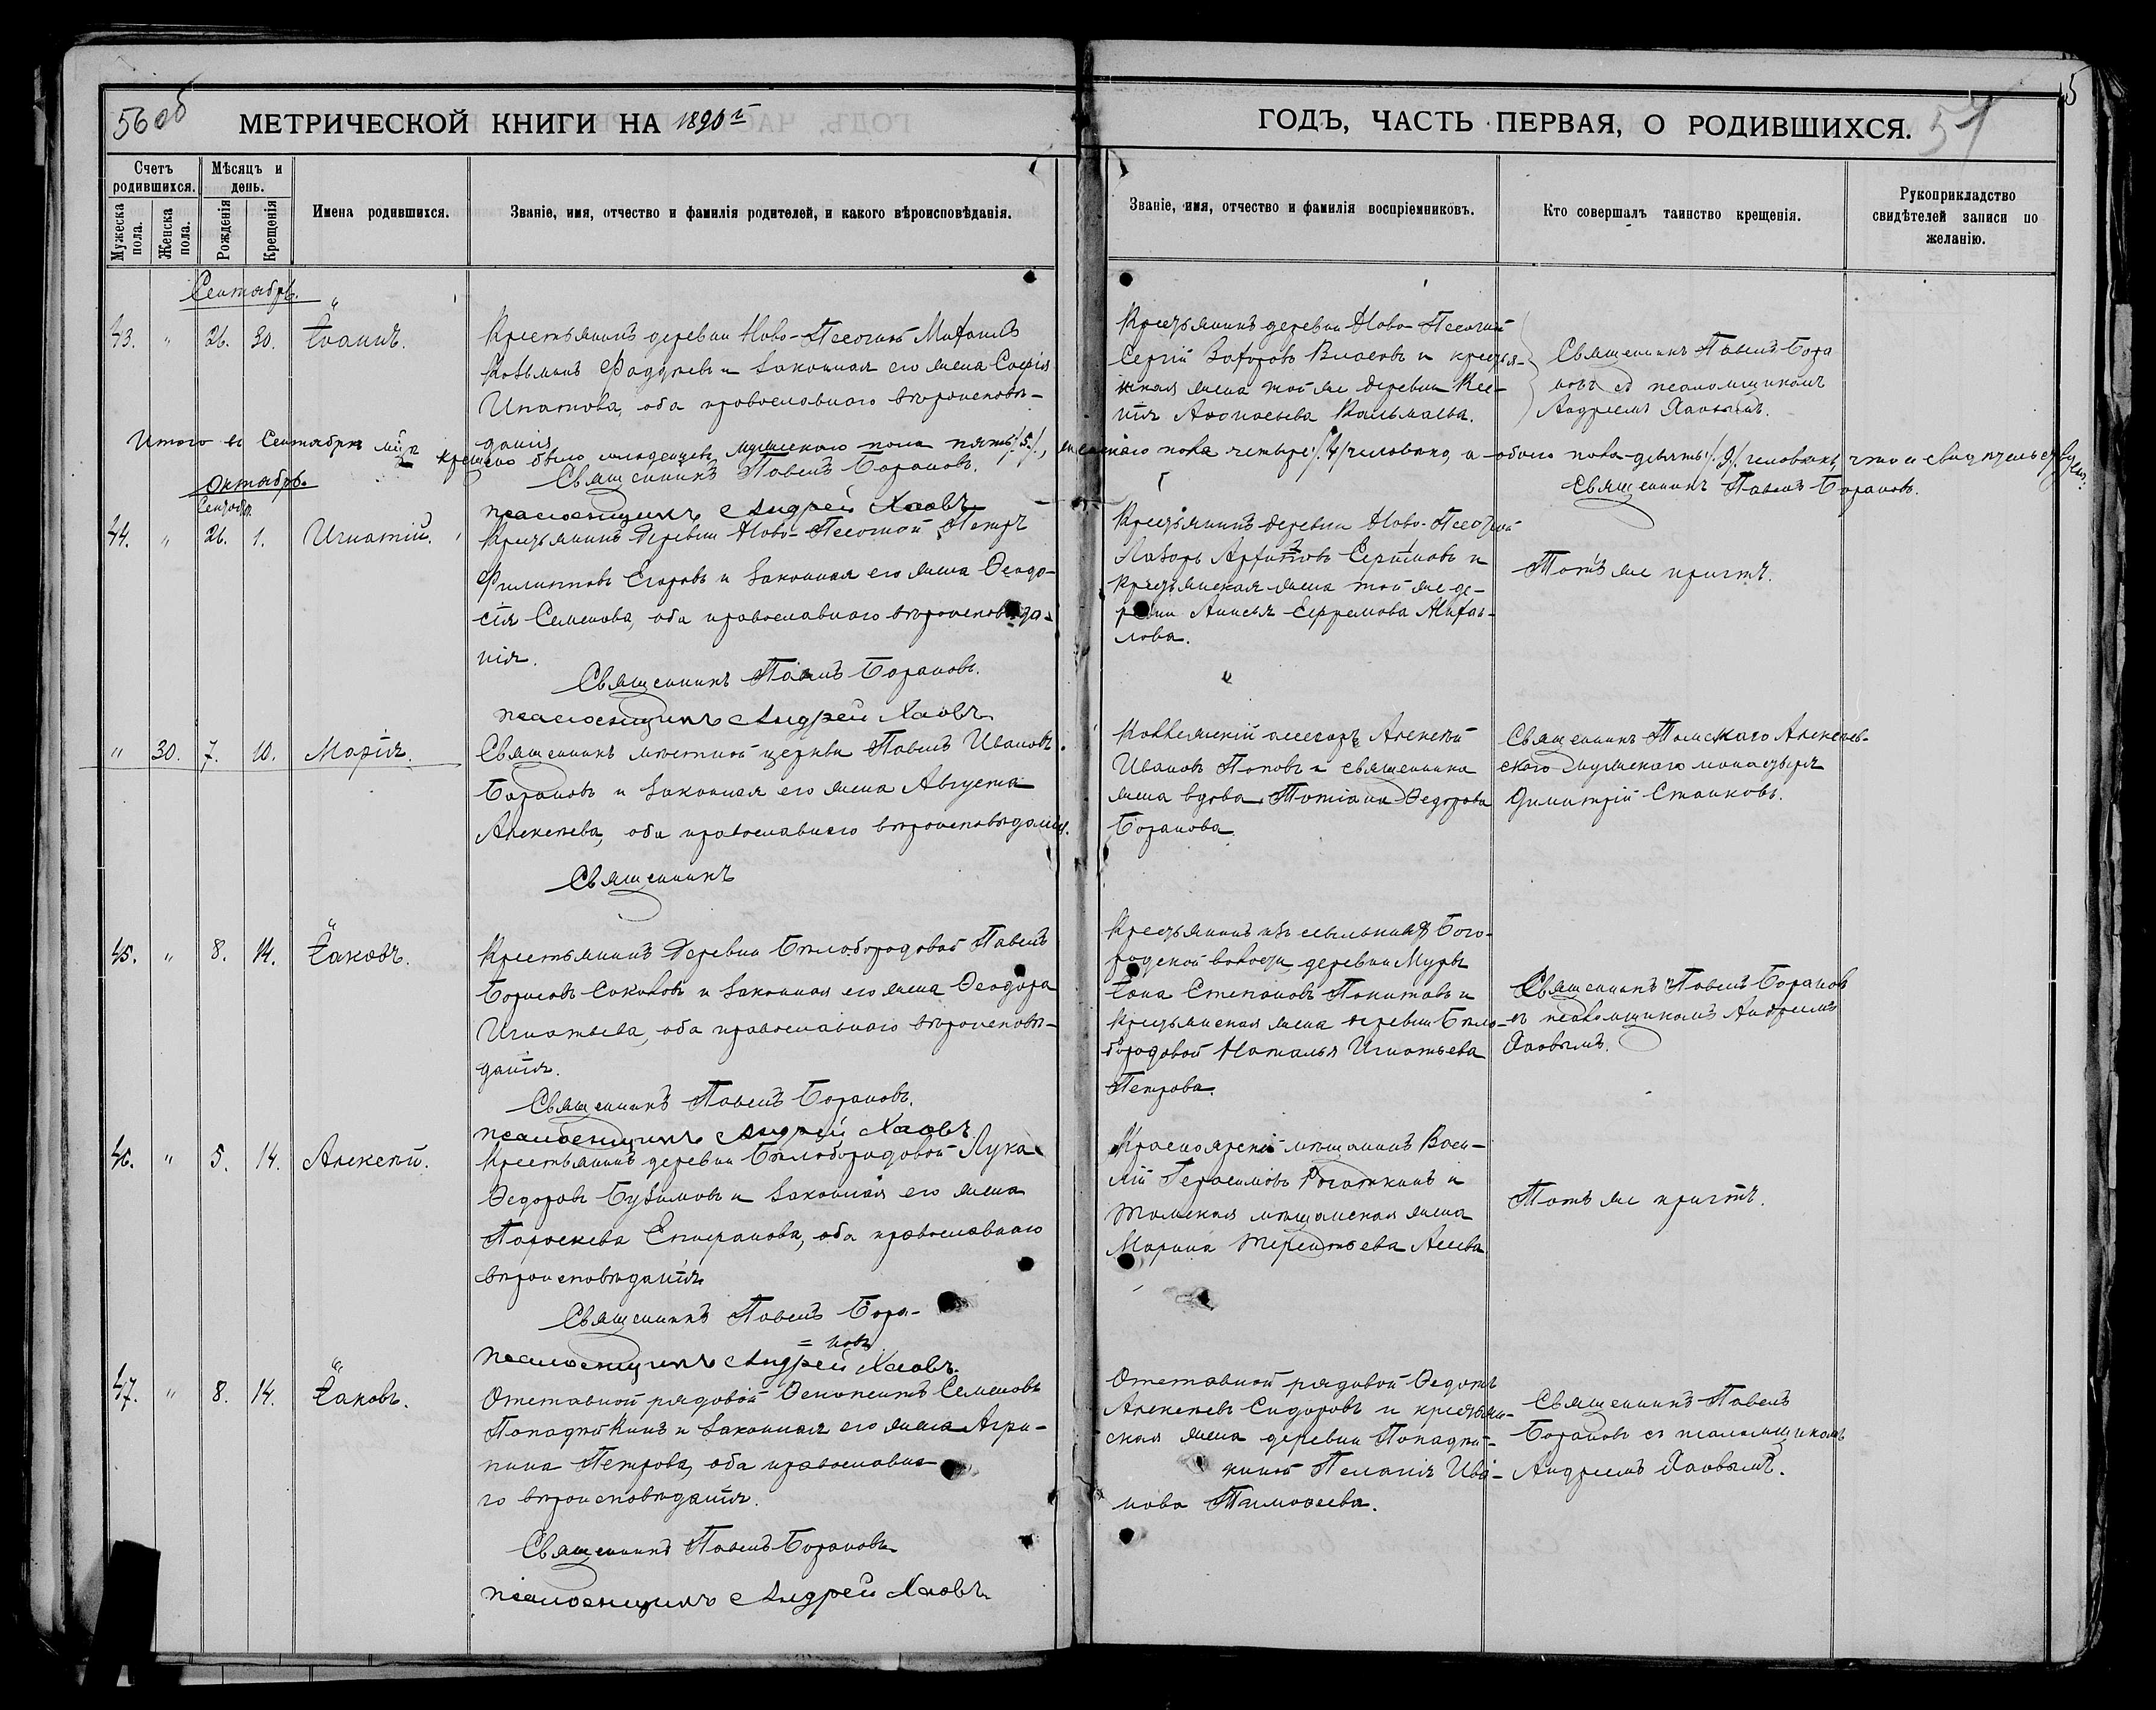 56об
МЕТРИЧЕСКОЙ КНИГИ НА 1896й
ГОДЪ, ЧАСТЬ ПЕРВАЯ, О РОДИВШИХСЯ.
57
5
Счетъ родившихся.
Мужеска пола.
Женска пола.
Мѣсяцъ и день.
Рожденія
Крещенія
Имена родившихся.
Званіе, имя, отчество и фамилія родителей, и какого вѣроисповѣданія.
Званіе, имя, отчество и фамилія воспріемниковъ.
Кто совершалъ таинство крещенія.
Рукоприкладство свидѣтелей записи по желанію.
Сентябрь.
43. " 26. 30. Іоаннъ.
Крестьянинъ деревни Ново-Песочной Михаилъ
Козьминъ Фаддѣевъ и законная его жена Софія
Ипатова, оба православнаго вѣроисповѣ-
данія
Крестьянинъ деревни Ново-Песочной
Сергій Власовъ и крестья-
нская жена той же деревни
Священникъ Павелъ Бара
новъ съ псаломщикомъ
Андреемъ Хаовымъ.
Итого въ Сентябрѣ мцѣ крещено было младенцевъ мужескаго пола пять /5/, женскаго пола четыре /4/ человека, а обоего пола девять /9/ человѣкъ, что и свидѣтельствуемъ:
Священникъ Павелъ Барановъ.
Священникъ Павелъ Барановъ.
псаломщикъ Андрей Хаовъ
Октябрь.
Сентябр.
44. " 26. 1. Игнатій.
Крестьянинъ деревни Ново-Песочной Петръ
Филипповъ Егоровъ и законная его жена Ѳеодо-
сія Семенова, оба православнаго вѣроисповѣда-
нія.
Священникъ Павелъ Барановъ.
псаломщикъ Андрей Хаовъ
Крестьянинъ деревни Ново-Песочной
Лазарь и
крестьянская жена той же де-
ревни Анисья Ефремова Михаи-
лова.
Тотъ же причтъ.
" 30. 7. 10. Марія.
Священникъ мѣстной церкви Павелъ Ивановъ
Барановъ и законная его жена Августа
Алексѣева, оба православнаго вѣроисповѣданія.
Священникъ
Коллежскій ассесоръ Алексѣй
Ивановъ Поповъ и священника
жена вдова Татіана Ѳедорова
Баранова.
Священникъ Томскаго Алексѣев-
скаго мужскаго монастыря
Димитрій Станковъ.
45. " 8. 14. Іаковъ.
Крестьянинъ деревни Бѣлобородовой Павелъ
Борисовъ Соколовъ и законная его жена Ѳеодора
Игнатьева, оба православнаго вѣроисповѣ-
данія.
Священникъ Павелъ Барановъ.
псаломщикъ Андрей Хаовъ
Крестьянинъ изъ ссыльныхъ Бого-
родской волости, деревни Муры
Іона Степановъ и
крестьянская жена деревни Бѣло-
бородовой Наталья Игнатьева
Петрова.
Священникъ Павелъ Барановъ
съ псаломщикомъ Андреемъ
Хаовымъ.
46. " 5. 14. Алексѣй.
Крестьянинъ деревни Бѣлобородовой Лука
Ѳедоровъ Бузимовъ и законная его жена
Параскева Епифанова, оба православнаго
вѣроисповѣданія
Священникъ Павелъ Бара-
= новъ
псаломщикъ Андрей Хаовъ.
Красноярскій мѣщанинъ Васи-
лій Герасимовъ Рогаткинъ и
томская мѣщанская жена
Марина Терентьева
Тотъ же причтъ.
47. " 8. 14. Іаковъ.
Отставной рядовой Ѳеопемптъ Семеновъ
Попадейкинъ и законная его жена Агри-
пина Петрова, оба православна-
го вѣроисповѣданія.
Священникъ Павелъ Барановъ
псаломщикъ Андрей Хаовъ
Отставной рядовой Ѳедотъ
Алексѣевъ Сидоровъ и крестьян-
ская жена деревни Попадей-
киной Пелагія Ива-
нова Тимоѳеева.
Священникъ Павелъ
Барановъ съ псаломщикомъ
Андреемъ Хаовымъ.